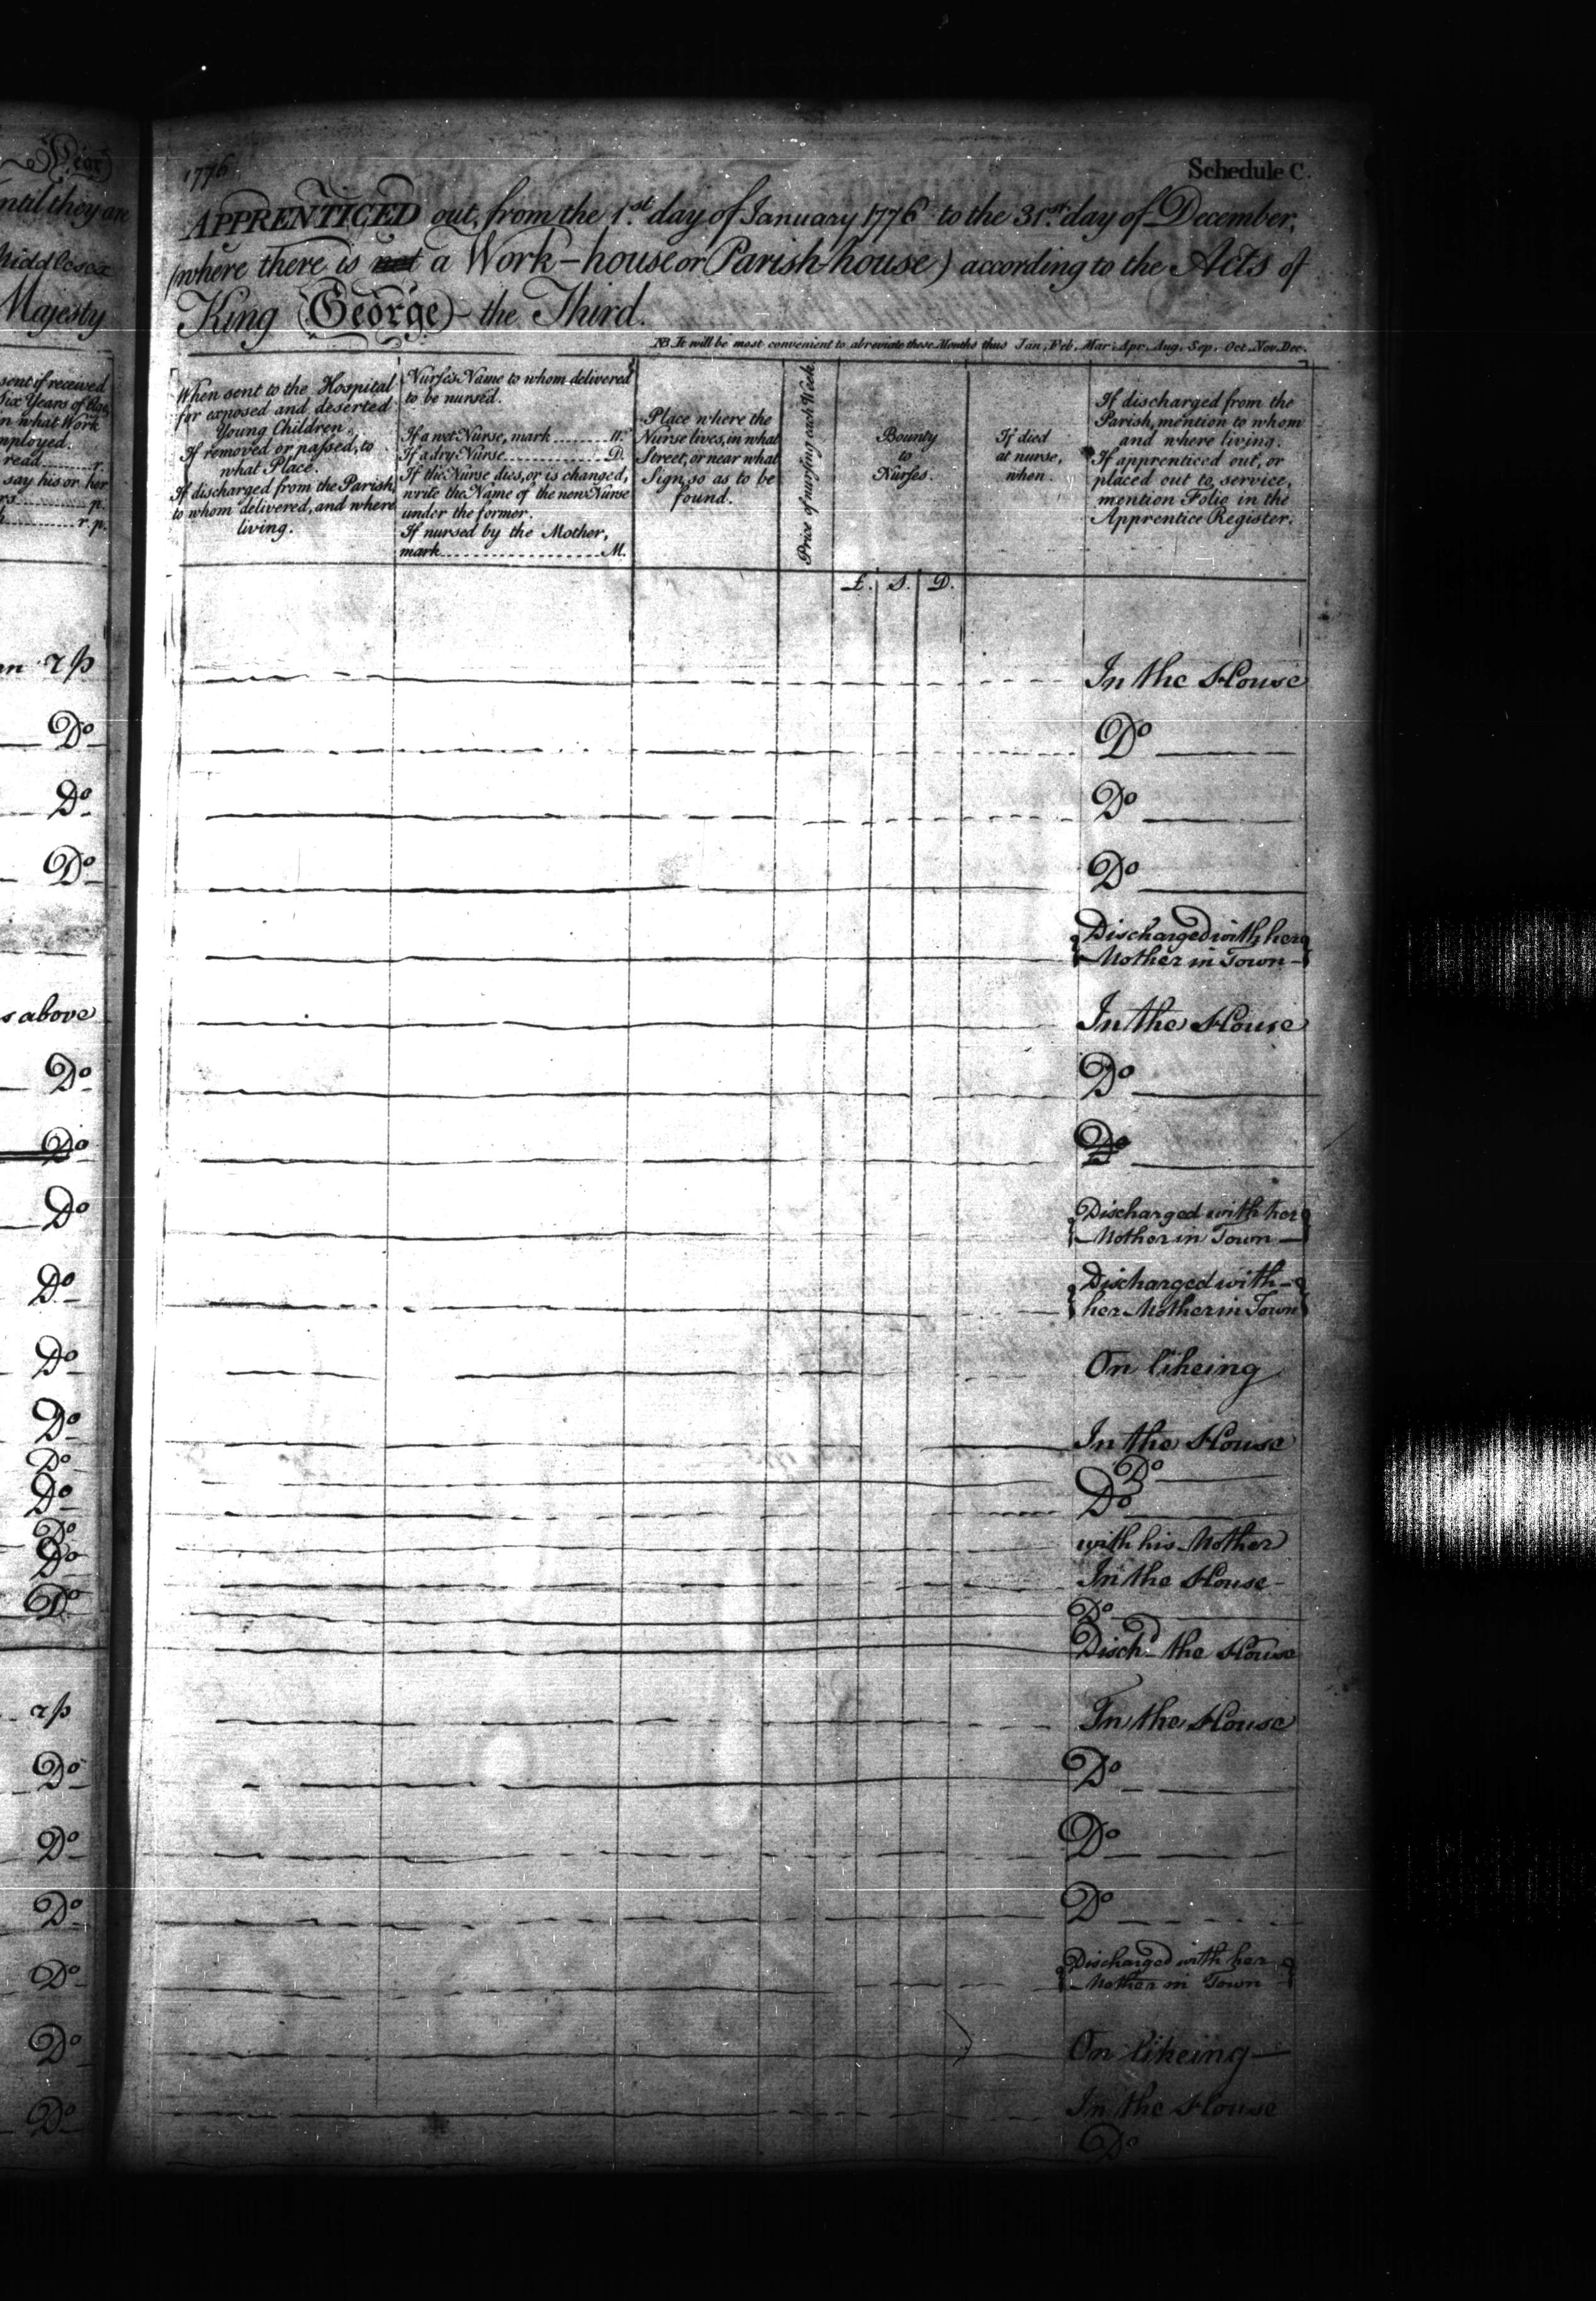 Year
1776
Schedule C.
until they are
APPRENTICED out, from the 1.st day of January 1776 to the 31.st day of December,
Middlesex
(where there is not a Work-house or Parish-house) according to the Acts of
Majesty
King George the Third.
NB. It will be most convenient to abreviate these Months thus Jan. Feb. Mar. Apr. Aug. Sep. Oct. Nov. Dec.
sent if received
Six Years of Age,
in what Work
employed.
read r.
say his or her
p.
r.p.
When sent to the Hospital
for exposed and deserted
Young Children.
If removed or passed, to
what Place.
If discharged from the Parish,
to whom delivered, and where
living.
Nurse's Name to whom delivered
to be nursed.
If a wet Nurse, mark W.
If a dry Nurse D.
If the Nurse dies, or is changed,
write the Name of the new Nurse
under the former.
If nursed by the Mother,
mark M.
Place where the
Nurse lives, in what
Street, or near what
Sign, so as to be
found.
Price of nursing each Week.
Bounty
to
Nurses.
£. S. D.
If died
at nurse,
when.
If discharged from the
Parish, mention to whom
and where living.
If apprenticed out, or
placed out to service,
mention Folio in the
Apprentice Register.
r p In the House
Do Do
Do Do
Do Do
Discharged with her
Mother in Town
s above In the House
Do Do
Do Do
Do Discharged with her
Mother in Town
Do Discharged with
her Mother in Town
Do On likeing
Do In the House
Do Do
Do Do
Do with his Mother
Do In the House
Do Do
Disch.d the House
r p In the House
Do Do
Do Do
Do Do
Do Discharged with her
Mother in Town
Do On likeing
Do In the House
Do